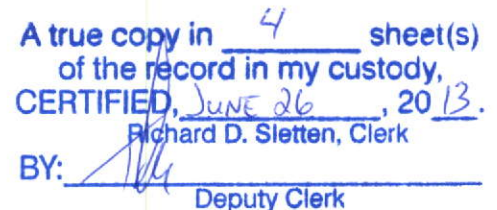 A true copy in 4 sheet(s)
of the record in my custody,
CERTIFIED, JUNE 26, 2013.
Richard D. Sletten, Clerk
BY:
Deputy Clerk